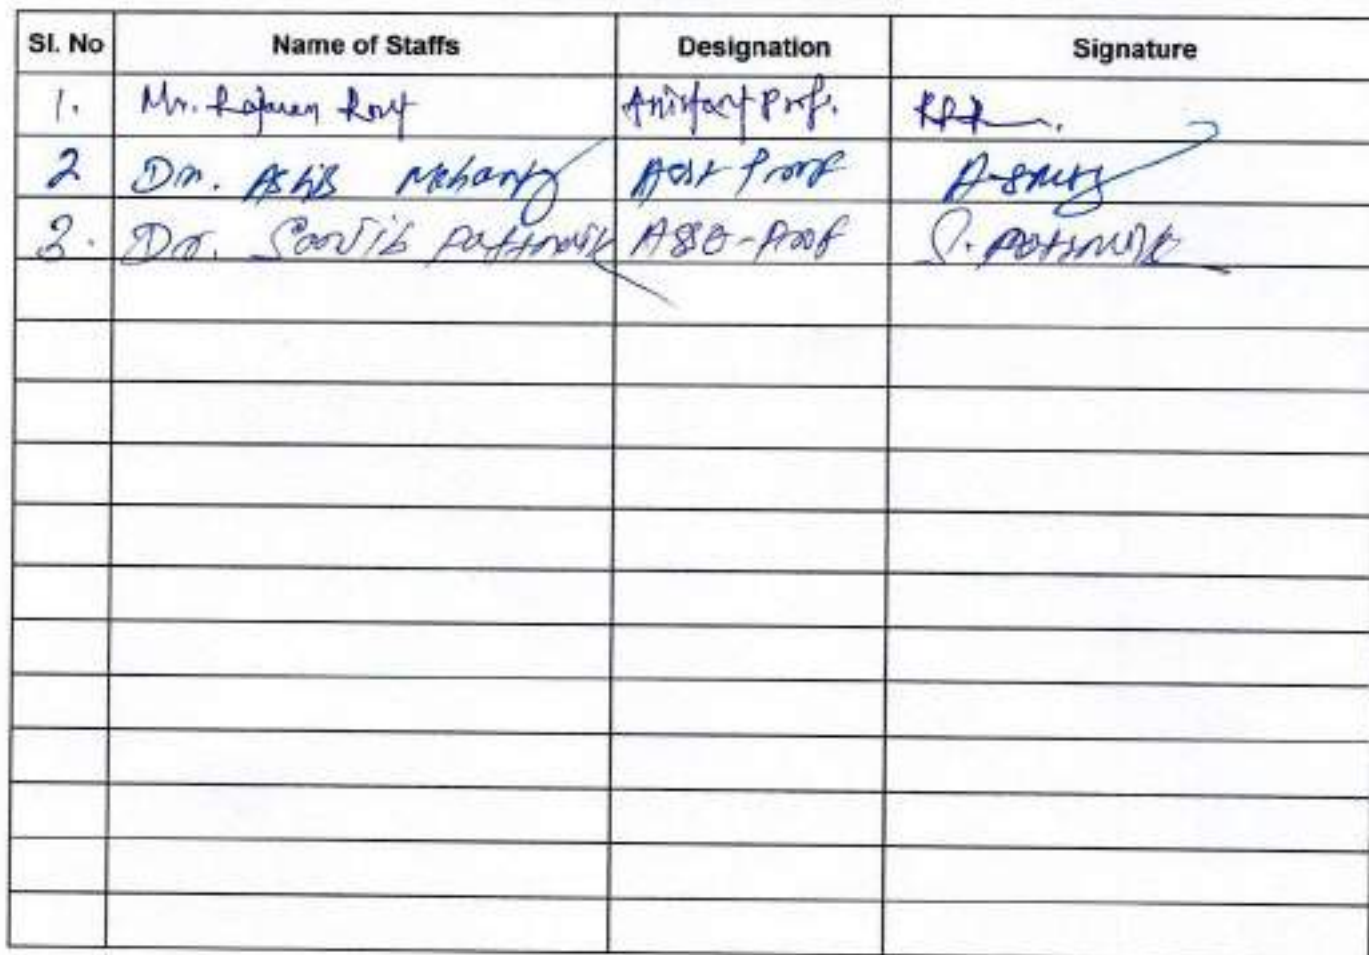 Sl. No Name of Staffs Designation Signature
1. Mr. Rajuen Rout Assistant Prof.
2 Dr. Ashis Mohanty Asst Prof
3. Dr. Souvik Pattnaik Asst-Prof S. Pattnaik